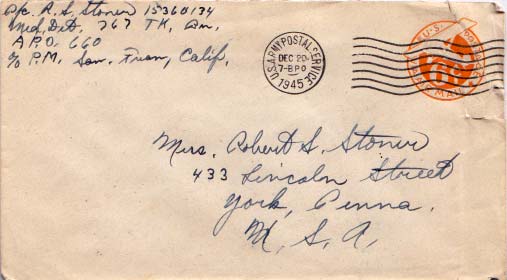 Pfc. R. S. Stoner 15360134
Med. Det. 767 TK. Bn.
A.P.O. 660
c/o P.M. San. Fran, Calif.
U.S. ARMY POSTAL SERVICE
DEC 20
7-BPO
1945
U.S. POSTAGE
6c
AIR MAIL
Mrs. Robert S. Stoner
433 Lincoln Street
York, Penna.
U. S. A.